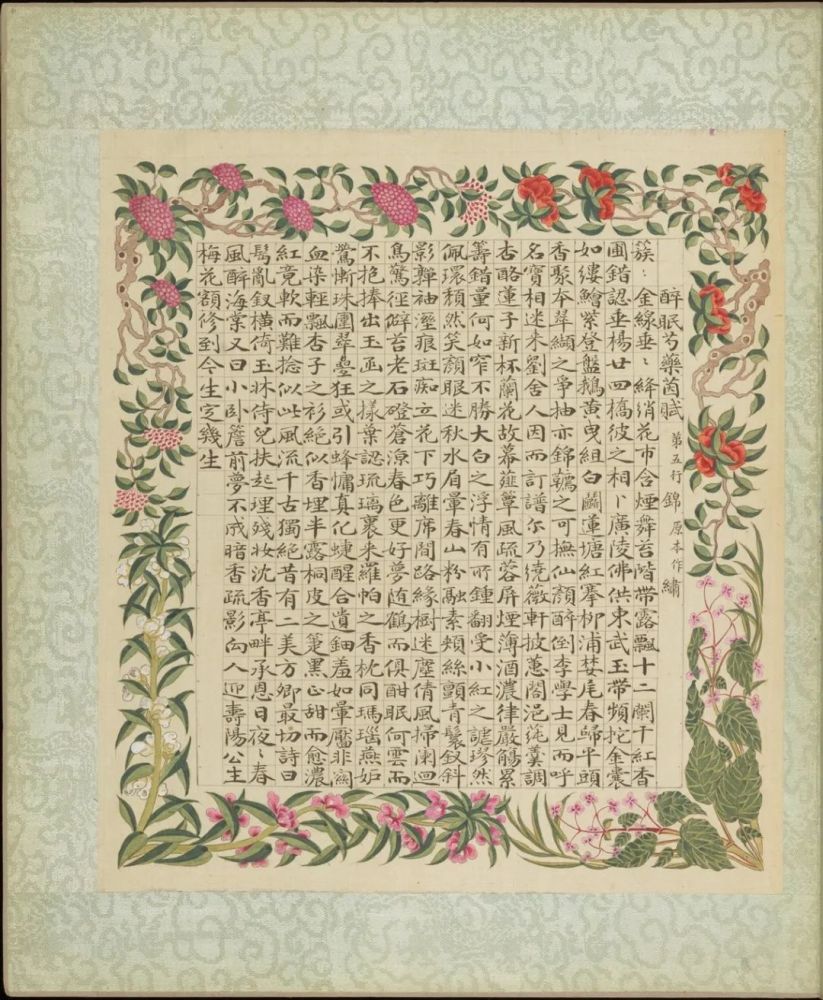 醉眠芍藥茵賦 第五行錦原本作繡
簇〻金線垂〻絳綃花市含煙舞苔階帶露飄十二闌干紅香
圃錯認垂楊廿四橋彼之相卜廣陵佛供東武玉帶頻拕金囊
如縷鱠縈登盤鵝黃曳組白鷴蓮塘紅搴柳浦婪尾春歸平頭
香聚夲草纈之爭抽亦錦韉之可撫仙顏醉倒李學士見而呼
名寶相迷未劉舍人因而訂譜尒乃繞薇軒披蕙閣浥羹調
杏酪蓮子新杯蘭花故幕薤簟風疏蓉屏煙薄酒濃律嚴觴累
籌錯量何如窄不勝大白之浮情有所鍾翻受小紅之謔璆然
佩環頹然笑顏眼迷秋水眉暈春山粉融素頰絲顫青鬟釵斜
影嚲袖溼痕斑痴立花下巧離席間路緣樹迷塵倩風掃闌迴
鳥驚徑僻苔老石磴蒼涼春色更好夢隨鶴而俱酣眠何雲而
不抱捧出玉函之樣葉認琉璃裹來羅帕之香枕同瑪瑙燕妒
鶯慚珠圍翠疊狂或引蜂慵真化蜨醒合遺鈿羞如暈靨非關
血染輕飄杏子之衫絕似香埋半露桐皮之箑黑正甜而愈濃
紅竟軟而難捻似此風流千古獨絕昔有二美方卿最切詩曰
鬢亂釵橫倚玉牀侍兒扶起理殘妝沈香亭畔承恩日夜〻春
風醉海棠又曰小卧簷前夢不成暗香疏影向人迎壽陽公主
梅花額修到今生定幾生